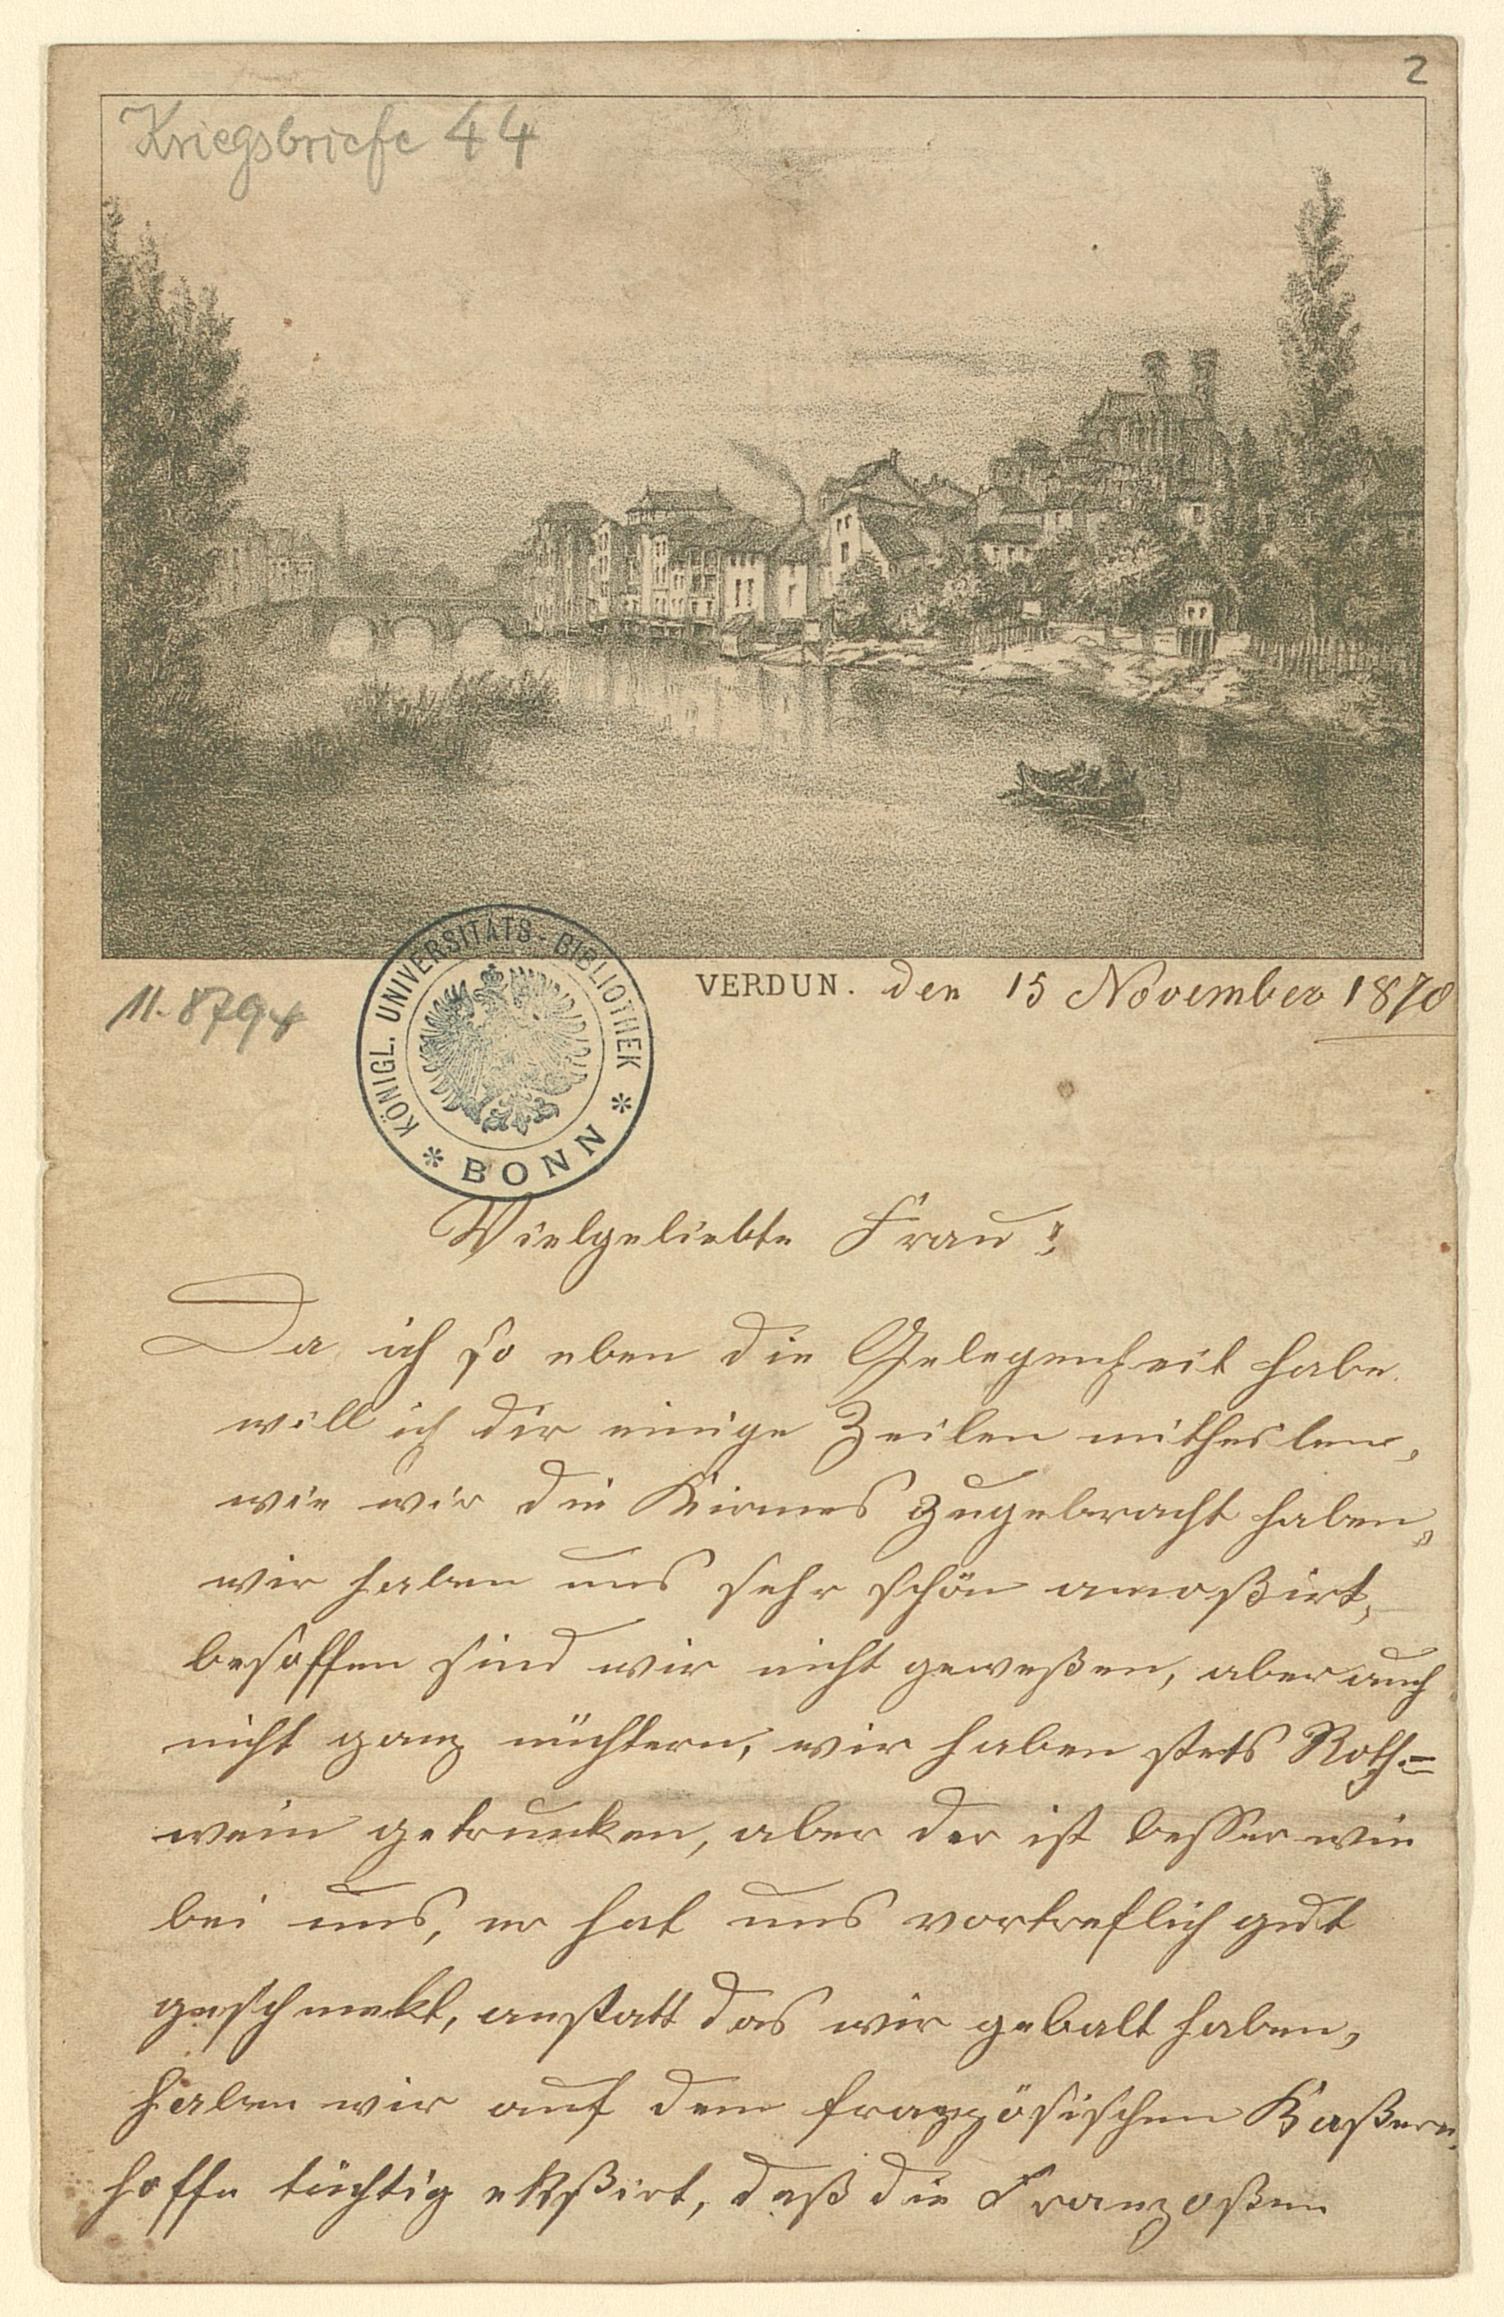 2
Kriegsbriefe 44
VERDUN. den 15 November 1870
11.8794
KÖNIGL. UNIVERSITÄTS-BIBLIOTHEK
* BONN *
Vielgeliebte Frau!
Da ich so eben die Gelegenheit habe
will ich dir einige Zeilen mitheilen,
wie wir die Kirmes zugebracht haben,
wir haben uns sehr schön amoßirt,
besoffen sind wir nicht geweßen, aber auch
nicht ganz nüchtern, wir haben stets Roth-
wein getrunken, aber der ist besser wie
bei uns, er hat uns vortreflich gut
geschmekt, anstatt das wir gebalt haben,
haben wir auf dem französischen Kaßern
hoffe tüchtig ekßirt, daß die Franzoßen